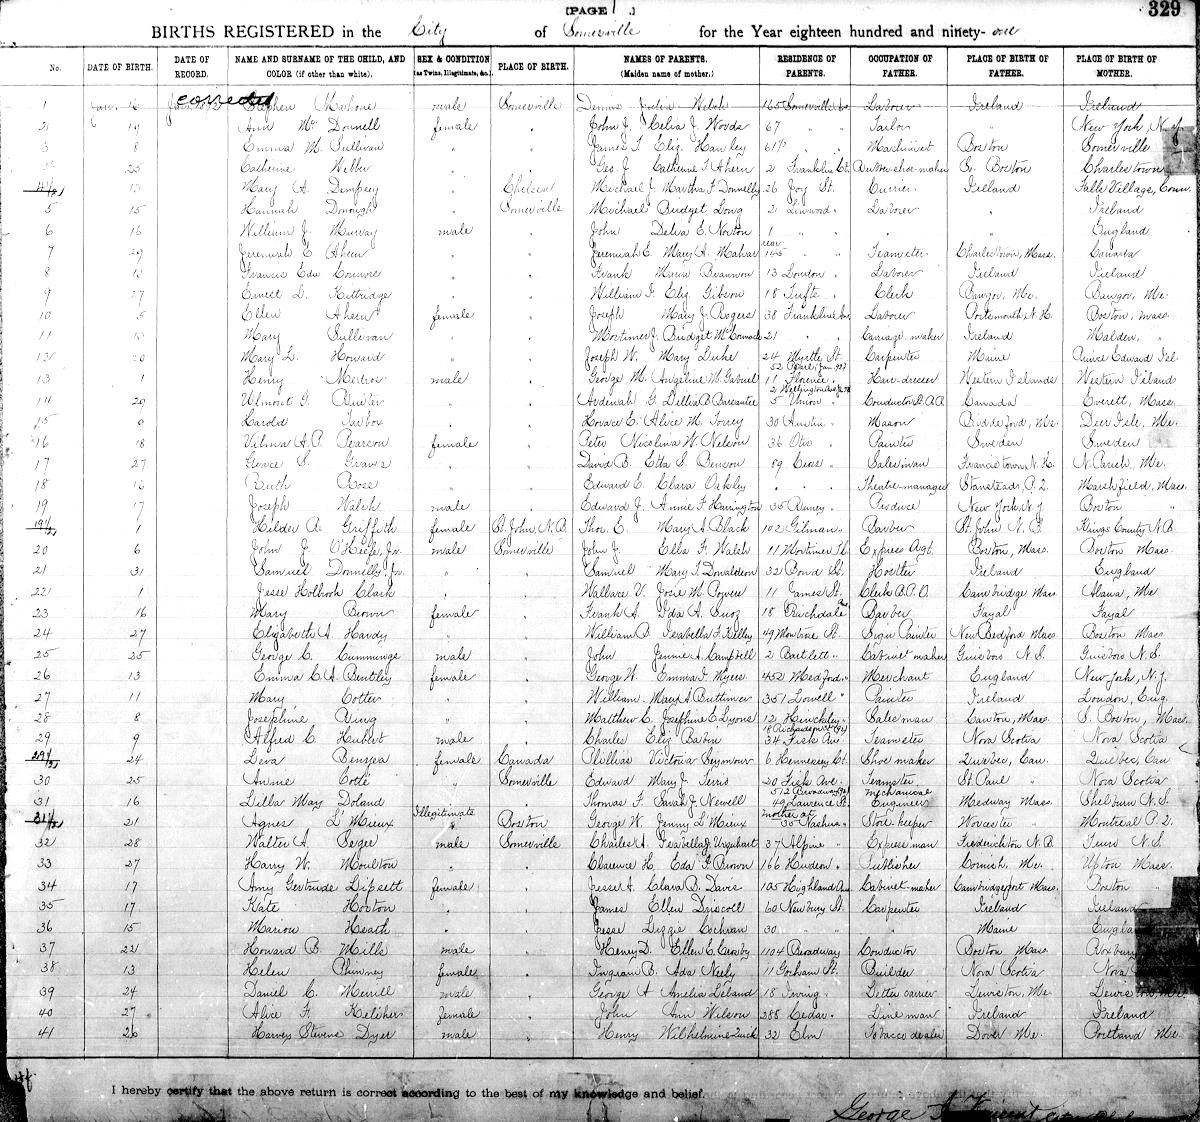 [PAGE 1 .] 329
BIRTHS REGISTERED in the City of Somerville for the Year eighteen hundred and ninety-one
No. DATE OF BIRTH. DATE OF RECORD. NAME AND SURNAME OF THE CHILD, AND COLOR (if other than white). SEX & CONDITION (as Twins, Illegitimate, &c.) PLACE OF BIRTH. NAMES OF PARENTS. (Maiden name of mother.) RESIDENCE OF PARENTS. OCCUPATION OF FATHER. PLACE OF BIRTH OF FATHER. PLACE OF BIRTH OF MOTHER.
corrected
1 Jan. 16 Stephen Mahone male Somerville Dennis Julia Welch 165 Somerville Av. Laborer Ireland Ireland
2 19 Ann Mc Donnell female " John J. Celia J. Woods 67 " " Tailor " New York, N.Y.
3 8 Emma M. Sullivan " " James T. Eliz. Hawley 617 " " Machinist Boston Somerville
4 25 Catherine Webber " " Geo. J. Catherine T. Ahern 2 Franklin Ct. shoe-maker E. Boston Charlestown
4 1/2 13 Mary A. Dempsey " Chelsea Michael J. Martha F. Donnelly 26 Joy St. Currier Ireland Falls Village, Conn.
5 15 Hannah Donough " Somerville Michael Bridget Long 21 Linwood " Laborer " Ireland
6 16 William J. Murray male " John Delia E. Norton 1 " " " " England
7 29 Jeremiah E. Ahern " " Jeremiah E. Mary A. Mahar rear 145 " " Teamster Charlestown, Mass. Canada
8 13 Francis Edw. Connors " " Frank Maria Brannon 13 London " Laborer Ireland Ireland
9 27 Ernest L. Kittridge " " William F. Eliz. Gibson 18 Tufts " Clerk Bangor, Me. Bangor, Me.
10 5 Ellen Ahern female " Joseph Mary J. Rogers 38 Franklin Ave. Laborer Portsmouth N.H. Boston, Mass.
11 13 Mary Sullivan " " Mortimer J. Bridget McCormack 21 " " Carriage maker Ireland Malden, "
12 20 Mary L. Howard " " Joseph W. Mary Duke 24 Myrtle St. Carpenter Maine Prince Edward Isl.
13 1 Henry male " George M. Angeline M. Gabriel 11 Florence " Hair-dresser Western Islands Western Island
14 29 " " 5 Union " Conductor Canada Everett, Mass.
15 9 Harold Tarbox " " Horace E. Alice M. Torrey 30 Austin " Mason Biddeford, Me. Deer Isle, Me.
16 18 Velma A.P. Pearson female " Peter Nicolina W. Nelson 36 Otis " Painter Sweden Sweden
17 27 Grace S. Graves " " David B. Etta S. Benson 89 Cross " Salesman Francistown, N.H. N. Parish, Me.
18 16 Ruth Rose " " Edward E. Clara Oakley " " " Theatre-manager Stanstead, P.Q. Marshfield, Mass.
19 17 Joseph Walsh male " Edward J. Annie F. Harrington 35 " Produce New York, N.Y. Boston "
19 1/2 1 Hilder A. Griffith female St. John, N.B. Thos. E. Mary A. Black 102 Gilman " Barber St. John N.B. Kings County N.B.
20 6 John J. O'Keefe, Jr. male Somerville John J. Ella F. Walsh 11 Mortimer Pl. Express Agt. Boston, Mass. Boston Mass.
21 31 Samuel Donnelly, Jr. " " Samuel Mary J. Donaldson 32 Bond St. Hostler Ireland England
22 1 Jesse Holbrook Clark " " Wallace V. Josie M. Powers 11 James St. Clerk B.P.O. Cambridge Mass. Me
23 16 Mary Brown female " Frank A. Ida A. 18 Ave Barber Fayal Fayal
24 27 Elizabeth A. Hardy " " William B. Isabella F. Kelley 49 Montrose St. Sign Painter New Bedford Mass. Boston Mass
25 25 George C. Cummings male " John Jennie A. Campbell 2 Bartlett " Cabinet maker Guisboro N.S. Guisboro N.S.
26 13 Emma C. A. Bentley female " George W. Emma F. Myers 452 Medford " Merchant England New York, N.Y.
27 11 Mary Cotter " " William Mary A. Buttimer 351 Lowell " Painter Ireland London, Eng.
28 8 Josephine Ving " " Matthew C. Josephine E. Lyons 12 Hinckley " Salesman Canton, Mass. S. Boston, Mass.
29 9 Alfred C. Hubert male " Charles Eliz. Babin 18 Richardson St. (92) 34 Fisk Ave. Teamster Nova Scotia Nova Scotia
29 1/2 24 female Canada Victoria Seymour 6 Hennessy Ct. Shoe maker Quebec, Can. Quebec, Can
30 25 Annie " Somerville Edward Mary J. 20 Fisk Ave. Teamster St. Paul " Nova Scotia
31 16 Lilla May Doland " " Thomas F. Sarah J. Newell 512 Broadway (92) 49 Lawrence St. Mechanical Engineer Medway Mass. Shelburn N.S.
31 1/2 21 Agnes L'Mieux Illegitimate " Boston George W. Jenny L'Mieux mother at 35 Nashua " Store keeper Worcester " Montreal P.Q.
32 28 Walter A. male Somerville Charles A. Isabella J. Urquhart 37 Alpine " Expressman Fredericton N.B. Truro N.S.
33 27 Harry W. Moulton " " Clarence H. Eda G. Brown 166 Hudson " Publisher Cornish, Me. Upton Mass.
34 17 Amy Gertrude Lipsett female " Jesse A. Clara B. Davis 105 Highland Ave Cabinet-maker Cambridgeport Mass. Boston "
35 17 Kate Horton " " James Ellen Driscoll 60 Newbury St. Carpenter Ireland Ireland
36 15 Marion Heath " " Jesse Lizzie Cochran 30 " " " Maine England
37 22 Howard B. Mills male " Henry D. Ellen E. Crosby 1104 Broadway Conductor Boston Mass. Roxbury
38 13 Helen Phinney female " Ingram B. Ada Neely 11 Gorham St. Builder Nova Scotia Nova
39 24 Daniel C. Merrill male " George A. Amelia Leland 18 Irving " Letter carrier Lewiston, Me. Lewiston, Me.
40 27 Alice F. Kelcher female " John Ann Wilson 288 Cedar " Lineman Ireland Ireland
41 26 Harvey Stevens Dyer male " Henry Wilhelmine Luck 32 Elm Tobacco dealer Dover Me. Portland Me.
I hereby certify that the above return is correct according to the best of my knowledge and belief.
George